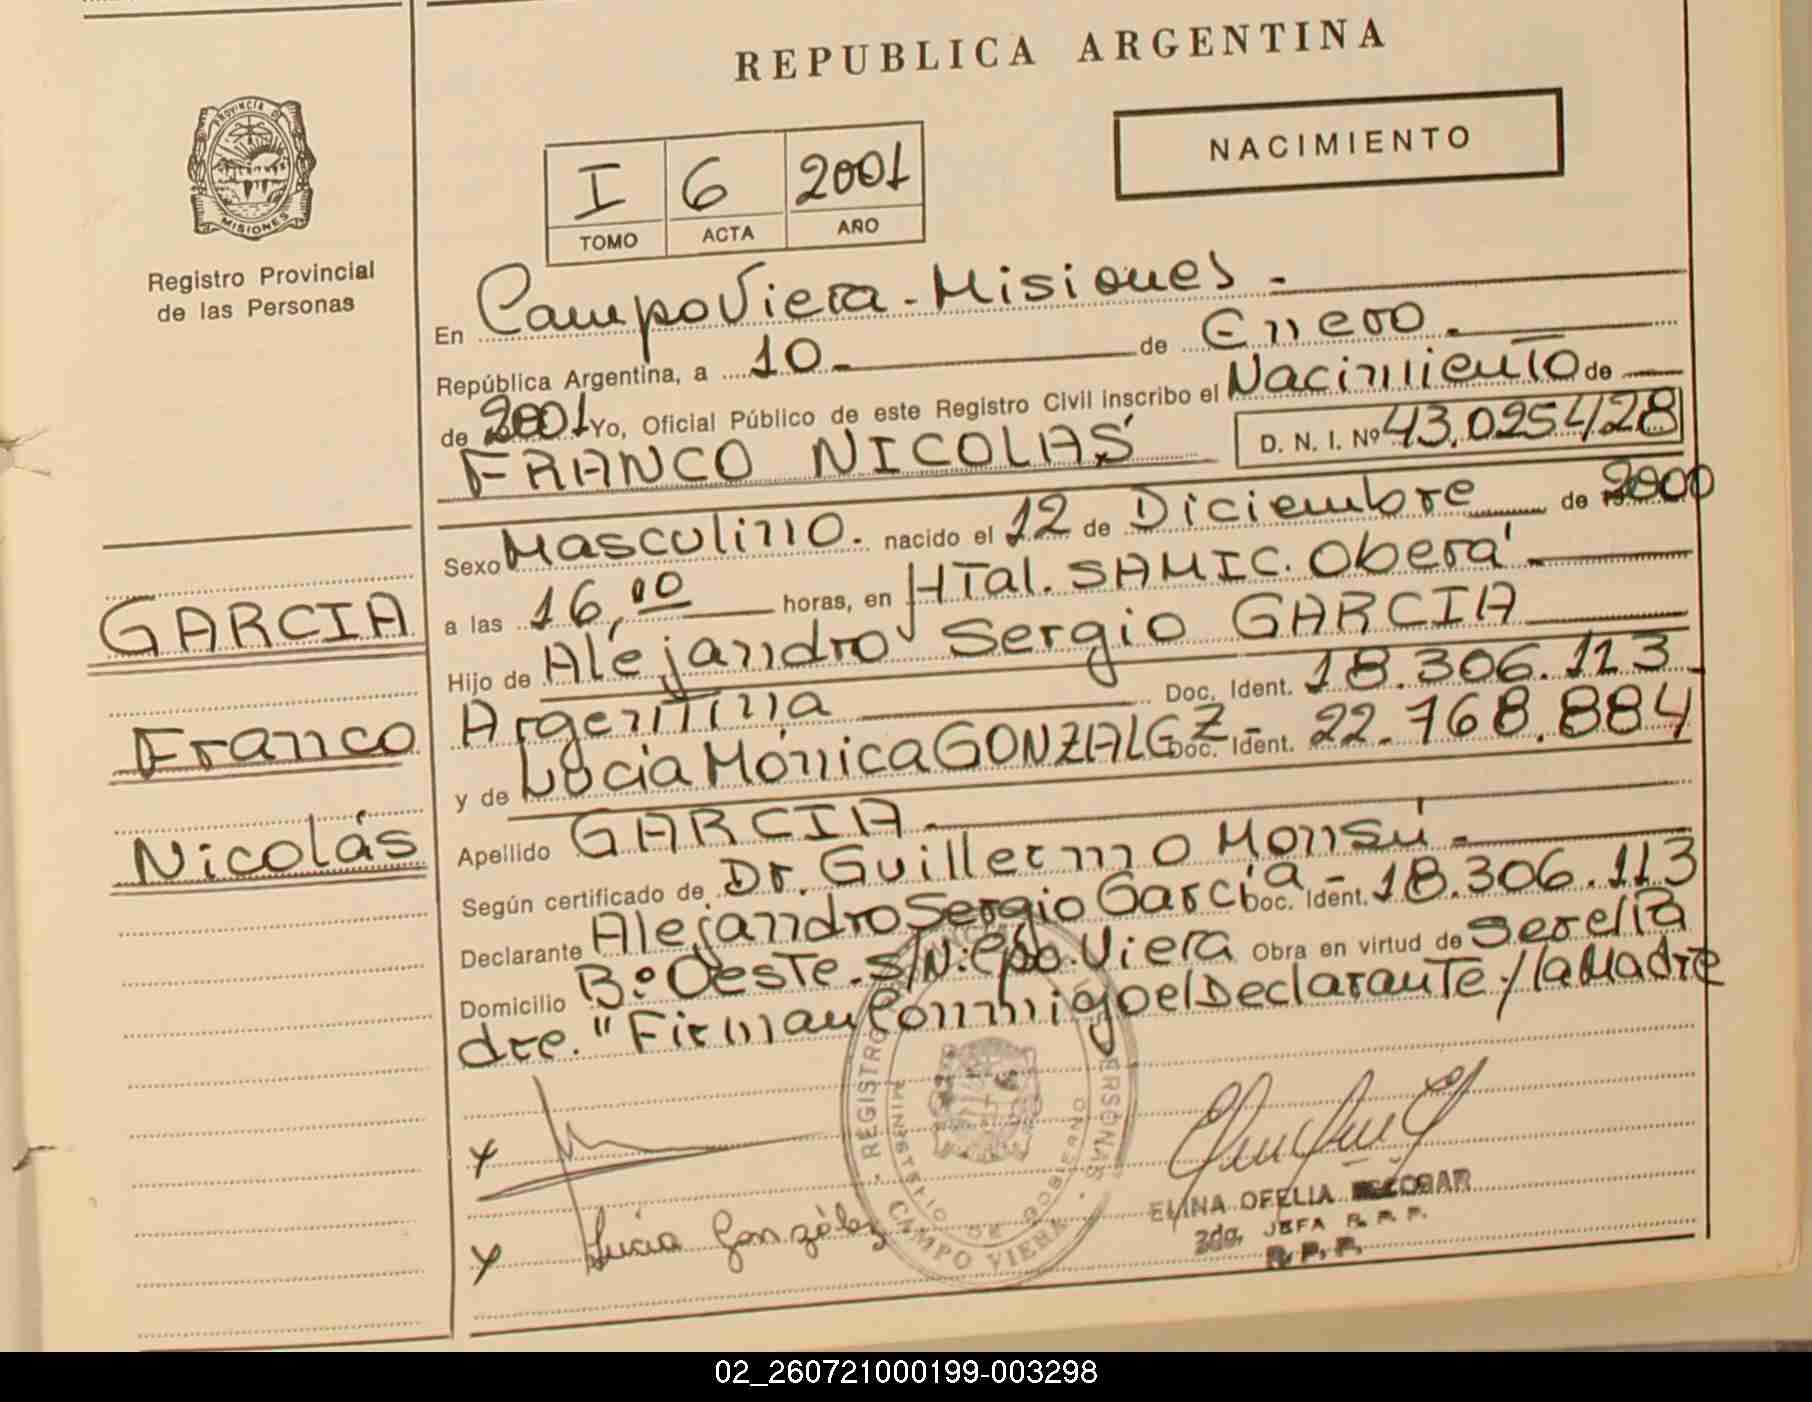 REPUBLICA ARGENTINA
NACIMIENTO
PROVINCIA D
MISIONES
Registro Provincial
de las Personas
I 6 2001
TOMO ACTA AÑO
En Campo Viera - Misiones -
República Argentina, a 10 - de Enero -
de 2001 Yo, Oficial Público de este Registro Civil inscribo el Nacimiento de
FRANCO NICOLÁS D. N. I. Nº 43.025428
Sexo Masculino. nacido el 12 de Diciembre de 2000
a las 16,00 horas, en HTal. SAMIC. Oberá -
Hijo de Alejandro Sergio GARCIA
Argentina Doc. Ident. 18.306.113 -
y de Lucia Mónica GONZALEZ - Doc. Ident. 22.768.884
Apellido GARCIA -
Según certificado de Dr. Guillermo Monsú -
Declarante Alejandro Sergio Garcia - Doc. Ident. 18.306.113
Domicilio Bº Oeste - S/N: Cpo. Viera Obra en virtud de ser el Pa
dre. " Firman Conmigo el Declarante / la Madre
GARCIA
Franco
Nicolás
x
x Lucia González
REGISTRO PERSONAS
MINISTERIO DE GOBIERNO
CAMPO VIERA
ELINA OFELIA ESCOBAR
2da. JEFA R. P. P.
R. P. P.
02_260721000199-003298